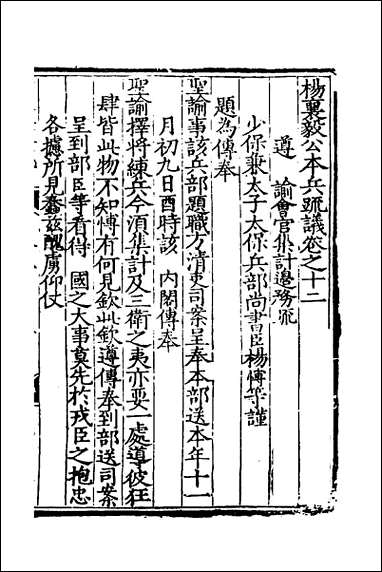 楊襄毅公本兵疏議卷之十二
遵 諭會官集計邊務疏
少保兼太子太保兵部尚書臣楊博等謹
題為傳奉
聖諭事該兵部題職方清吏司案呈奉本部送本年十一
月初九日酉時該 内閣傳奉
聖諭擇將練兵今須集計及三衛之夷亦要一處導彼狂
肆皆此物不知博有何見欽此欽遵傳奉到部送司案
呈到部臣等看得 國之大事莫先於戎臣之抱忠
各攄所見蠢兹醜虜仰仗